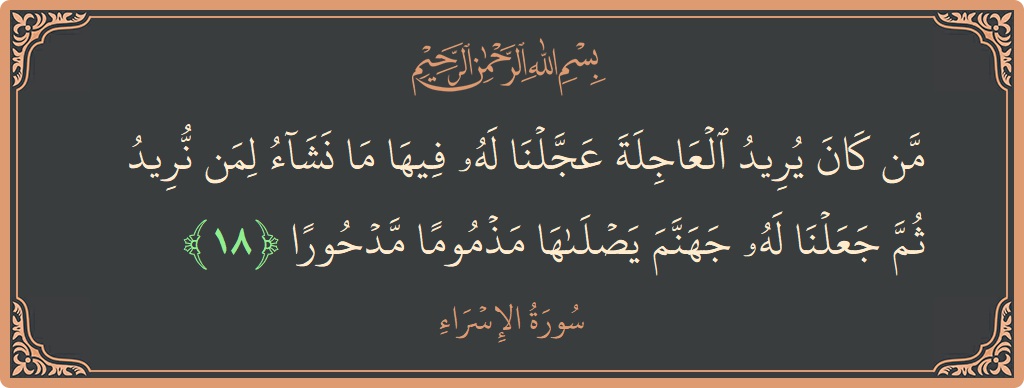 بِسْمِ اللَّهِ الرَّحْمَٰنِ الرَّحِيمِ
مَّن كَانَ يُرِيدُ ٱلْعَاجِلَةَ عَجَّلْنَا لَهُۥ فِيهَا مَا نَشَآءُ لِمَن نُّرِيدُ
ثُمَّ جَعَلْنَا لَهُۥ جَهَنَّمَ يَصْلَىٰهَا مَذْمُومًا مَّدْحُورًا ﴿١٨﴾
سُورَةُ الإِسْرَاءِ